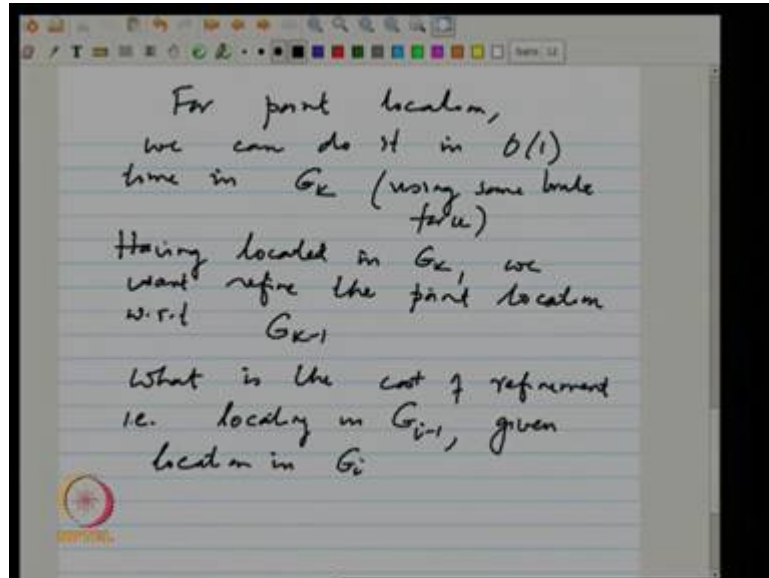 For point location,
we can do it in O(1)
time in GK (using some brute
force)
Having located in GK, we
want refine the point location
w.r.t GK-1
What is the cost of refinement
i.e. locating in Gi-1, given
location in Gi